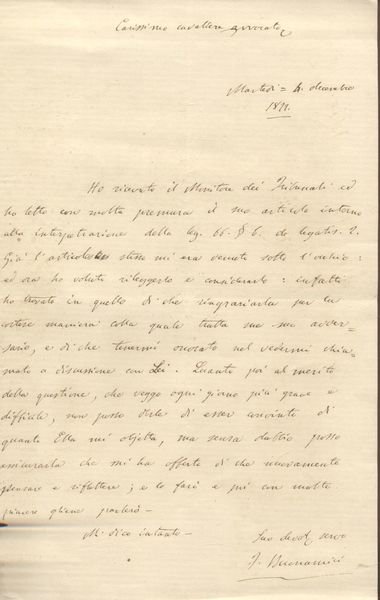 Carissimo cavaliere avvocato
Martedì = 4. decembre
1877.
Ho ricevuto il Monitore dei Tribunali ed
ho letto con molta premura il suo articolo intorno
alla Interpretazione della leg. 66. § 6. de legatis. 2.
Già l'articolo stesso mi era venuto sotto l'occhio:
ed ora ho voluto rileggerlo e considerarlo: infatti
ho trovato in quello di che ringraziarla per la
cortese maniera colla quale tratta me suo avver-
sario, e di che tenermi onorato nel vedermi chia-
mato a discussione con Lei. Quanto poi al merito
della questione, che veggo ogni giorno più grave e
difficile, non posso dirle di esser convinto di
quanto Ella mi objetta, ma senza dubbio posso
assicurarla che mi ha offerto di che nuovamente
pensare e riflettere; e lo farò e poi con molto
piacere gliene parlerò—
Mi dico intanto—
Suo devot. servo
F. Buonamici